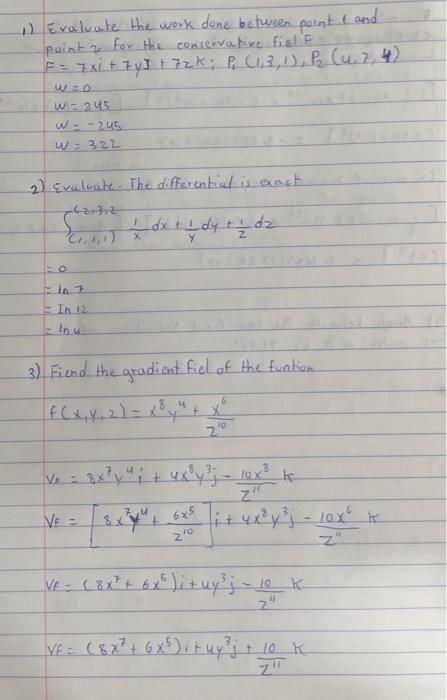 1) Evaluate the work done between point 1 and
point 2 for the conservative fiel F
F = 7xi + 7yJ + 7zK; P₁ (1,3,1), P₂ (4,7,4)
W = 0
W = 245
W = -245
W = 322
2) Evaluate. The differential is exact
∫₍₁,₁,₁₎^(2,3,2 1/x dx + 1/y dy + 1/z dz
= 0
= ln 7
= In 12
= ln 4
3) Fiend the gradient fiel of the funtion
f(x,y,z) = x⁸y⁴ + x⁶/z¹⁰
VF = 8x⁷y⁴i + 4x⁸y³j - 10x⁸/z¹¹ K
VF = [8x⁷y⁴ + 6x⁵/z¹⁰]i + 4x⁸y³j - 10x⁶/z¹¹ K
VF = (8x⁷ + 6x⁵)i + 4y³j - 10/z¹¹ K
VF = (8x⁷ + 6x⁵)i + 4y³j + 10/z¹¹ K